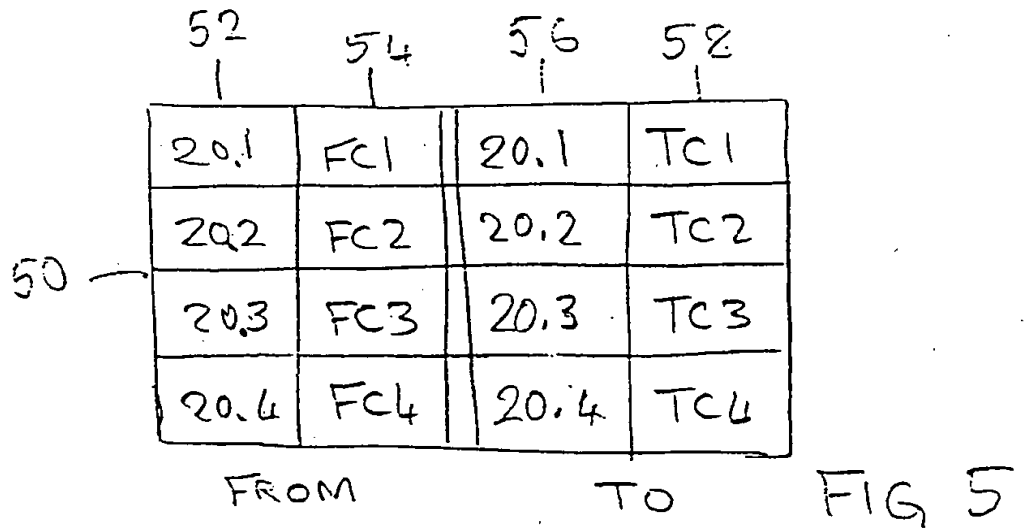 52 54 56 58
20.1 FC1 20.1 TC1
20.2 FC2 20.2 TC2
50
20.3 FC3 20.3 TC3
20.4 FC4 20.4 TC4
FROM TO
FIG 5